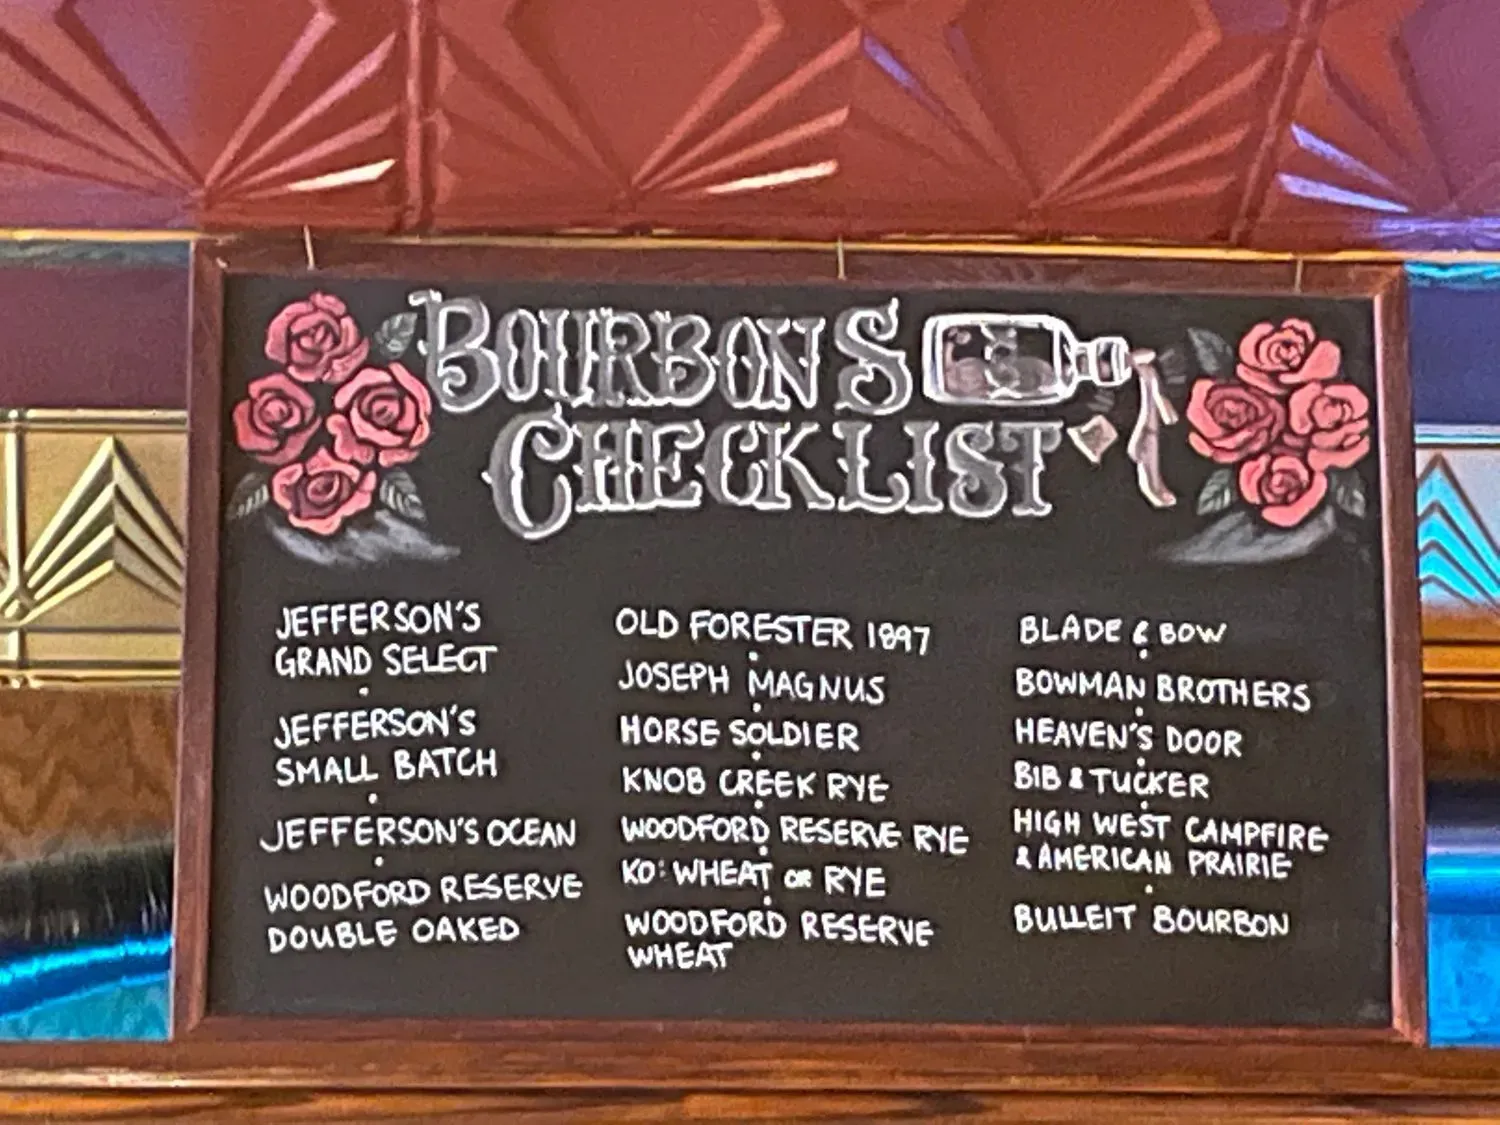 BOURBONS
CHECKLIST
JEFFERSON'S
GRAND SELECT
JEFFERSON'S
SMALL BATCH
JEFFERSON'S OCEAN
WOODFORD RESERVE
DOUBLE OAKED
OLD FORESTER 1897
JOSEPH MAGNUS
HORSE SOLDIER
KNOB CREEK RYE
WOODFORD RESERVE RYE
KO: WHEAT OR RYE
WOODFORD RESERVE
WHEAT
BLADE & BOW
BOWMAN BROTHERS
HEAVEN'S DOOR
BIB & TUCKER
HIGH WEST CAMPFIRE
& AMERICAN PRAIRIE
BULLEIT BOURBON